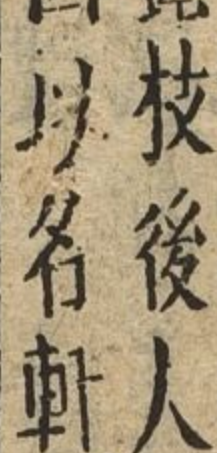 枝後人
以名軒